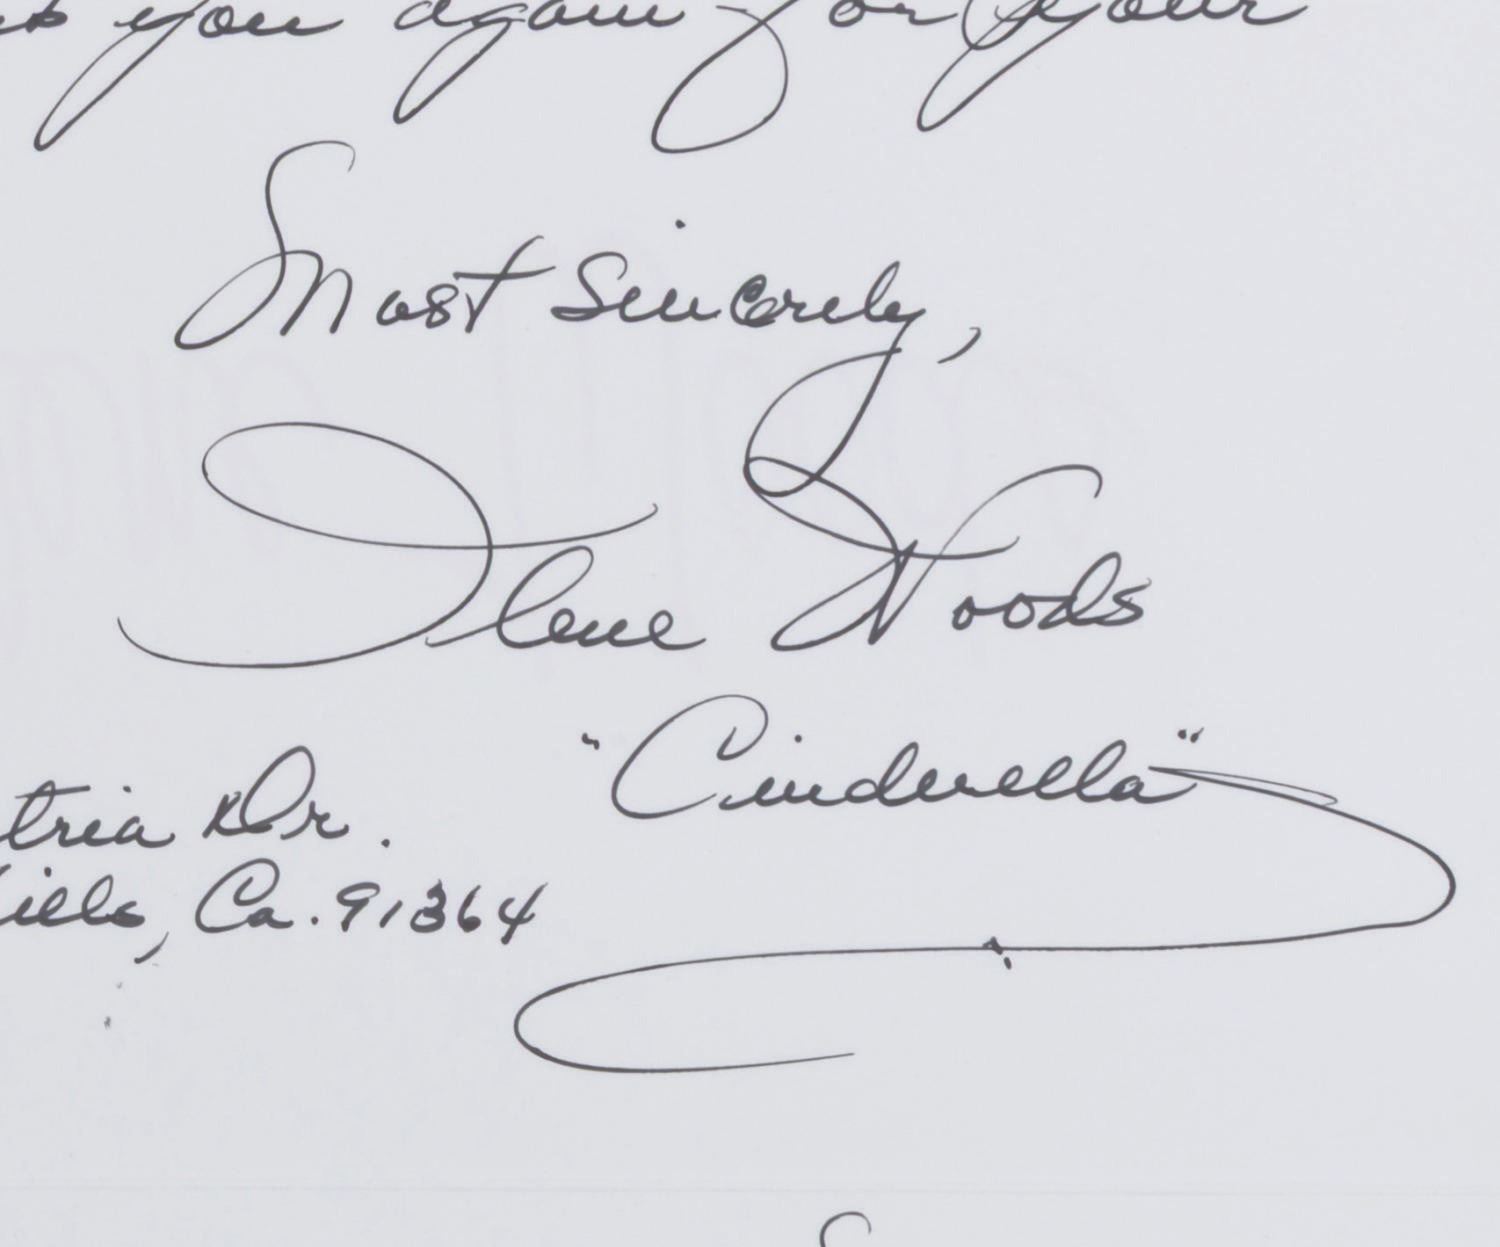 you again for your
Most Sincerely,
Ilene Woods
"Cinderella"
tria Dr.
Hills, Ca. 91364